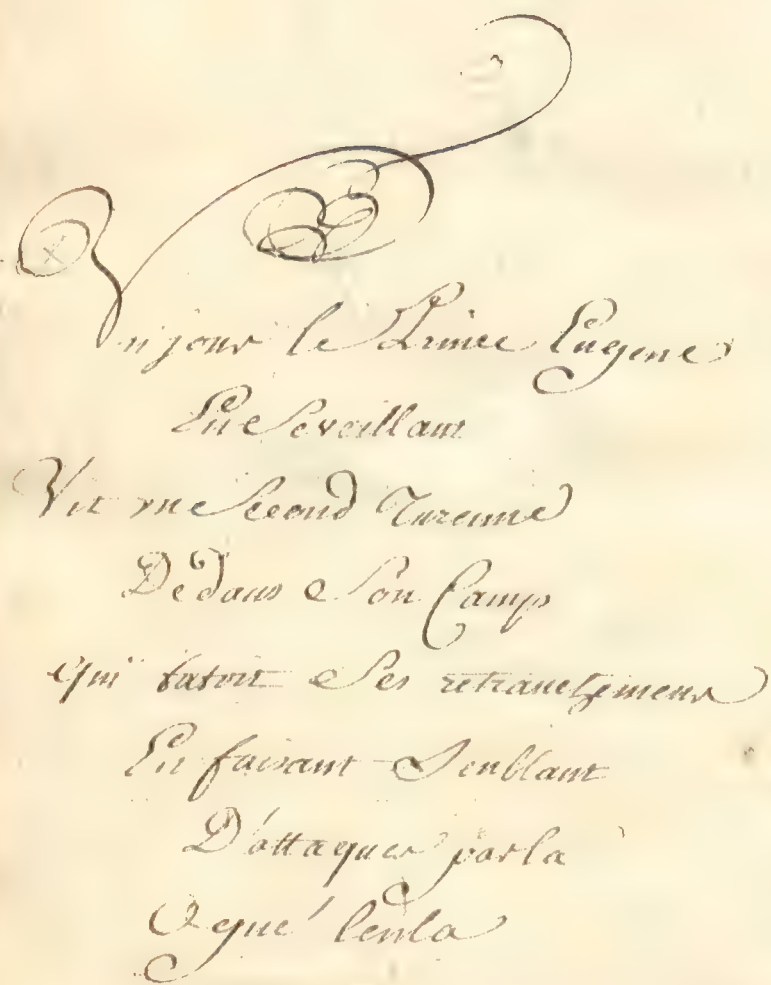 Un jour le Prince Eugene
En se reveillant
Vit un Second Turenne
Dedans Son Camp
qui tatoit Ses retranchemens
En faisant Semblant
D'attaquer par la
O gué lenla